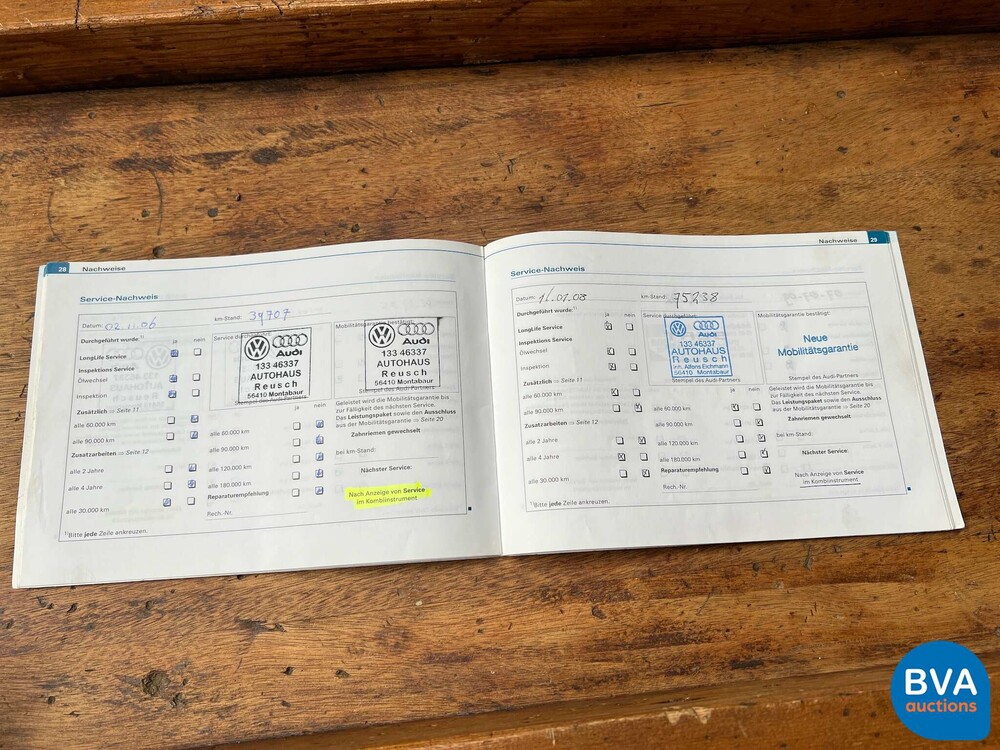 28 Nachweise
Service-Nachweis
Datum: 02.11.06 km-Stand: 34707
Durchgeführt wurde:¹⁾ ja nein
LongLife Service
Inspektions Service
Ölwechsel
Inspektion
Zusätzlich ⇒ Seite 11
alle 60.000 km
alle 90.000 km
Zusatzarbeiten ⇒ Seite 12
alle 2 Jahre
alle 4 Jahre
alle 30.000 km
¹⁾Bitte jede Zeile ankreuzen.
Service durchgeführt:
Audi
133 46337
AUTOHAUS
Reusch
56410 Montabaur
Stempel des Audi-Partners
ja nein
alle 60.000 km
alle 90.000 km
alle 120.000 km
alle 180.000 km
Reparaturempfehlung
Rech.-Nr.
Mobilitätsgarantie bestätigt:
Audi
133 46337
AUTOHAUS
Reusch
56410 Montabaur
Stempel des Audi-Partners
Geleistet wird die Mobilitätsgarantie bis
zur Fälligkeit des nächsten Service.
Das Leistungspaket sowie den Ausschluss
aus der Mobilitätsgarantie ⇒ Seite 20
Zahnriemen gewechselt
bei km-Stand:
Nächster Service:
Nach Anzeige von Service
im Kombiinstrument
Nachweise 29
Service-Nachweis
Datum: 16.01.08 km-Stand: 75238
Durchgeführt wurde:¹⁾ ja nein
LongLife Service
Inspektions Service
Ölwechsel
Inspektion
Zusätzlich ⇒ Seite 11
alle 60.000 km
alle 90.000 km
Zusatzarbeiten ⇒ Seite 12
alle 2 Jahre
alle 4 Jahre
alle 30.000 km
¹⁾Bitte jede Zeile ankreuzen.
Service durchgeführt:
Audi
133 46337
AUTOHAUS
Reusch
Inh. Alfons Eichmann
56410 Montabaur
Stempel des Audi-Partners
ja nein
alle 60.000 km
alle 90.000 km
alle 120.000 km
alle 180.000 km
Reparaturempfehlung
Rech.-Nr.
Mobilitätsgarantie bestätigt:
Neue
Mobilitätsgarantie
Stempel des Audi-Partners
Geleistet wird die Mobilitätsgarantie bis
zur Fälligkeit des nächsten Service.
Das Leistungspaket sowie den Ausschluss
aus der Mobilitätsgarantie ⇒ Seite 20
Zahnriemen gewechselt
bei km-Stand:
Nächster Service:
Nach Anzeige von Service
im Kombiinstrument
BVA
auctions